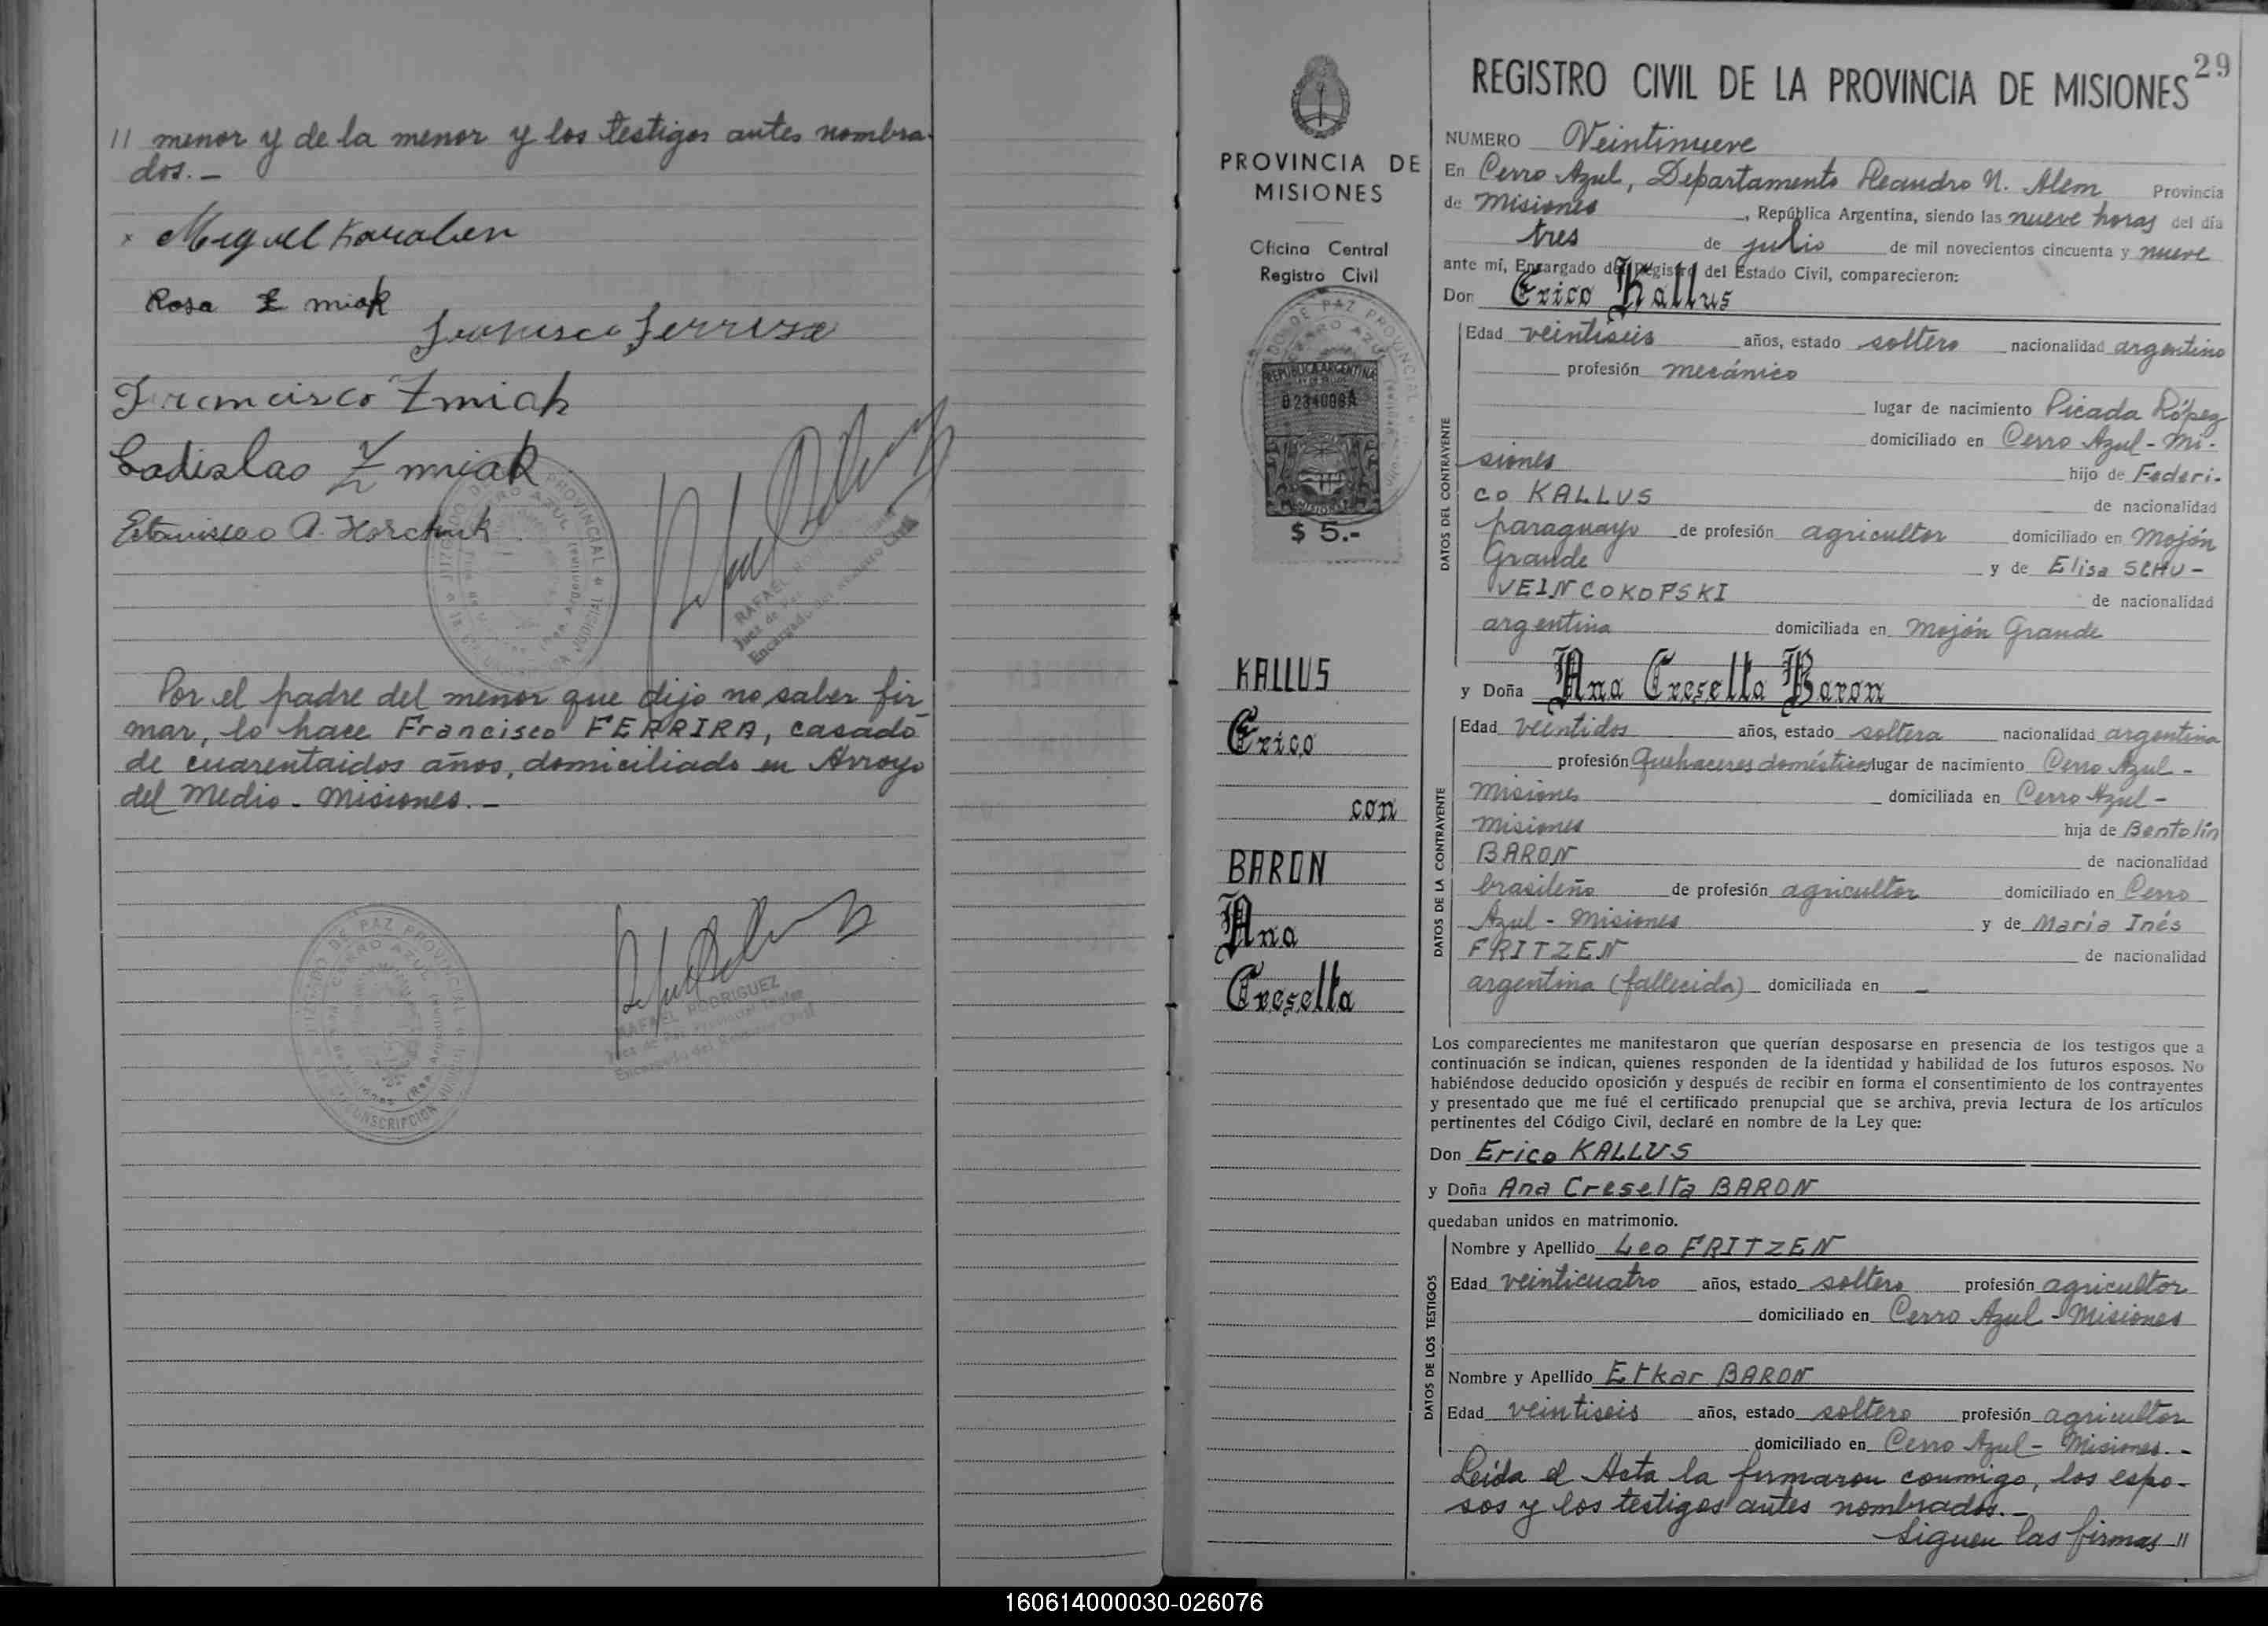 // menor y de la menor y los testigos antes nombra-
dos.-
x Miguel Karaben
Rosa Zmiak
Francisco Ferrira
Francisco Zmiak
Ladislao Zmiak
Estanislao A. Horchuk
JUZGADO DE PAZ PROVINCIAL
CERRO AZUL
RAFAEL RODRIGUEZ
Juez de Paz
Encargado del Registro Civil
Por el padre del menor que dijo no saber fir-
mar, lo hace Francisco FERRIRA, casado
de cuarentaidos años, domiciliado en Arroyo
del Medio - Misiones.-
JUZGADO DE PAZ PROVINCIAL
CERRO AZUL
RAFAEL RODRIGUEZ
Juez de Paz Provincial
Encargado del Registro Civil
PROVINCIA DE
MISIONES
Oficina Central
Registro Civil
REPUBLICA ARGENTINA
0234008A
MISIONES
$ 5.-
KALLUS
Erico
con
BARON
Ana
Creselta
29
REGISTRO CIVIL DE LA PROVINCIA DE MISIONES
NUMERO Veintinueve
En Cerro Azul, Departamento Leandro N. Alem Provincia
de Misiones, República Argentina, siendo las nueve horas del día
tres de julio de mil novecientos cincuenta y nueve
ante mí, Encargado del Registro del Estado Civil, comparecieron:
Don Erico Kallus
DATOS DEL CONTRAYENTE
Edad veintiseis años, estado soltero nacionalidad argentino
profesión mecánico
lugar de nacimiento Picada López
domiciliado en Cerro Azul - Mi-
siones hijo de Federi-
co KALLUS de nacionalidad
paraguayo de profesión agricultor domiciliado en Mojón
Grande y de Elisa SCHU-
VEINCOKOPSKI de nacionalidad
argentina domiciliada en Mojón Grande
y Doña Ana Creselta Baron
DATOS DE LA CONTRAYENTE
Edad veintidos años, estado soltera nacionalidad argentina
profesión Quehaceres domésticos lugar de nacimiento Cerro Azul -
Misiones domiciliada en Cerro Azul -
Misiones hija de Bentolin
BARON de nacionalidad
brasileño de profesión agricultor domiciliado en Cerro
Azul - Misiones y de María Inés
FRITZEN de nacionalidad
argentina (fallecida) domiciliada en -
Los comparecientes me manifestaron que querían desposarse en presencia de los testigos que a
continuación se indican, quienes responden de la identidad y habilidad de los futuros esposos. No
habiéndose deducido oposición y después de recibir en forma el consentimiento de los contrayentes
y presentado que me fué el certificado prenupcial que se archiva, previa lectura de los artículos
pertinentes del Código Civil, declaré en nombre de la Ley que:
Don Erico KALLUS
y Doña Ana Creselta BARON
quedaban unidos en matrimonio.
DATOS DE LOS TESTIGOS
Nombre y Apellido Leo FRITZEN
Edad veinticuatro años, estado soltero profesión agricultor
domiciliado en Cerro Azul - Misiones
Nombre y Apellido Etkar BARON
Edad veintiseis años, estado soltero profesión agricultor
domiciliado en Cerro Azul - Misiones.-
Leída el Acta la firmaron conmigo, los espo-
sos y los testigos antes nombrados.-
Siguen las firmas //
160614000030-026076